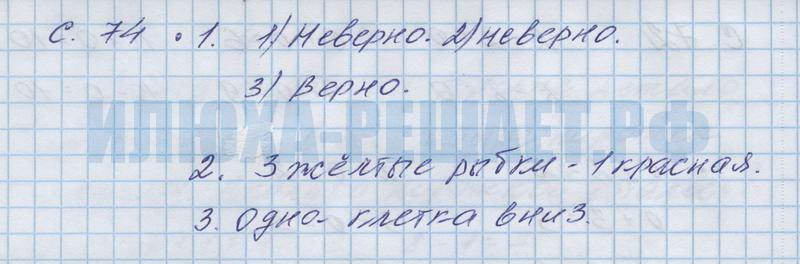 с. 74 • 1. 1) Неверно. 2) неверно.
3) Верно.
ИЛЮХА-РЕШАЕТ.РФ
2. 3 жёлтые рыбки - 1 красная.
3. Одно- клетка вниз.